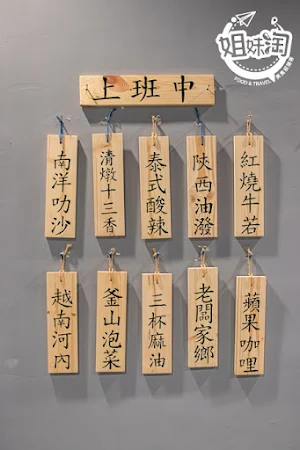 姐妹淘
FOOD & TRAVEL
上班中
南洋叻沙
清燉十三香
泰式酸辣
陝西油潑
紅燒牛若
越南河內
釜山泡菜
三杯麻油
老闆家鄉
蘋果咖哩